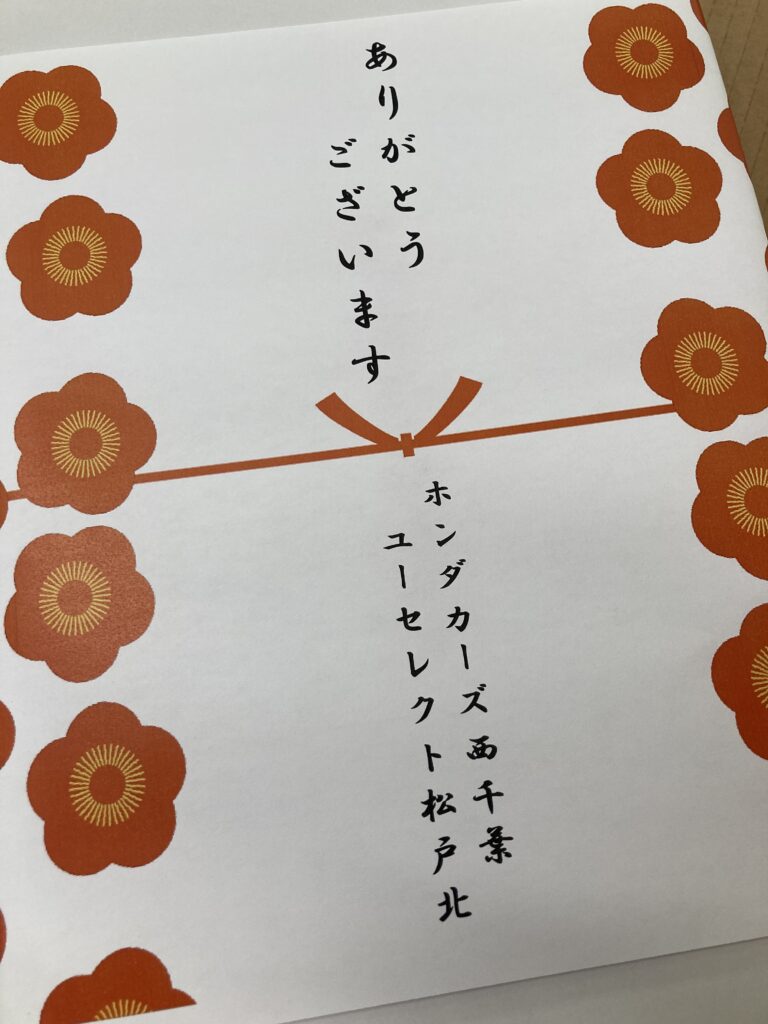 ありがとう
ございます
ホンダカーズ西千葉
ユーセレクト松戸北